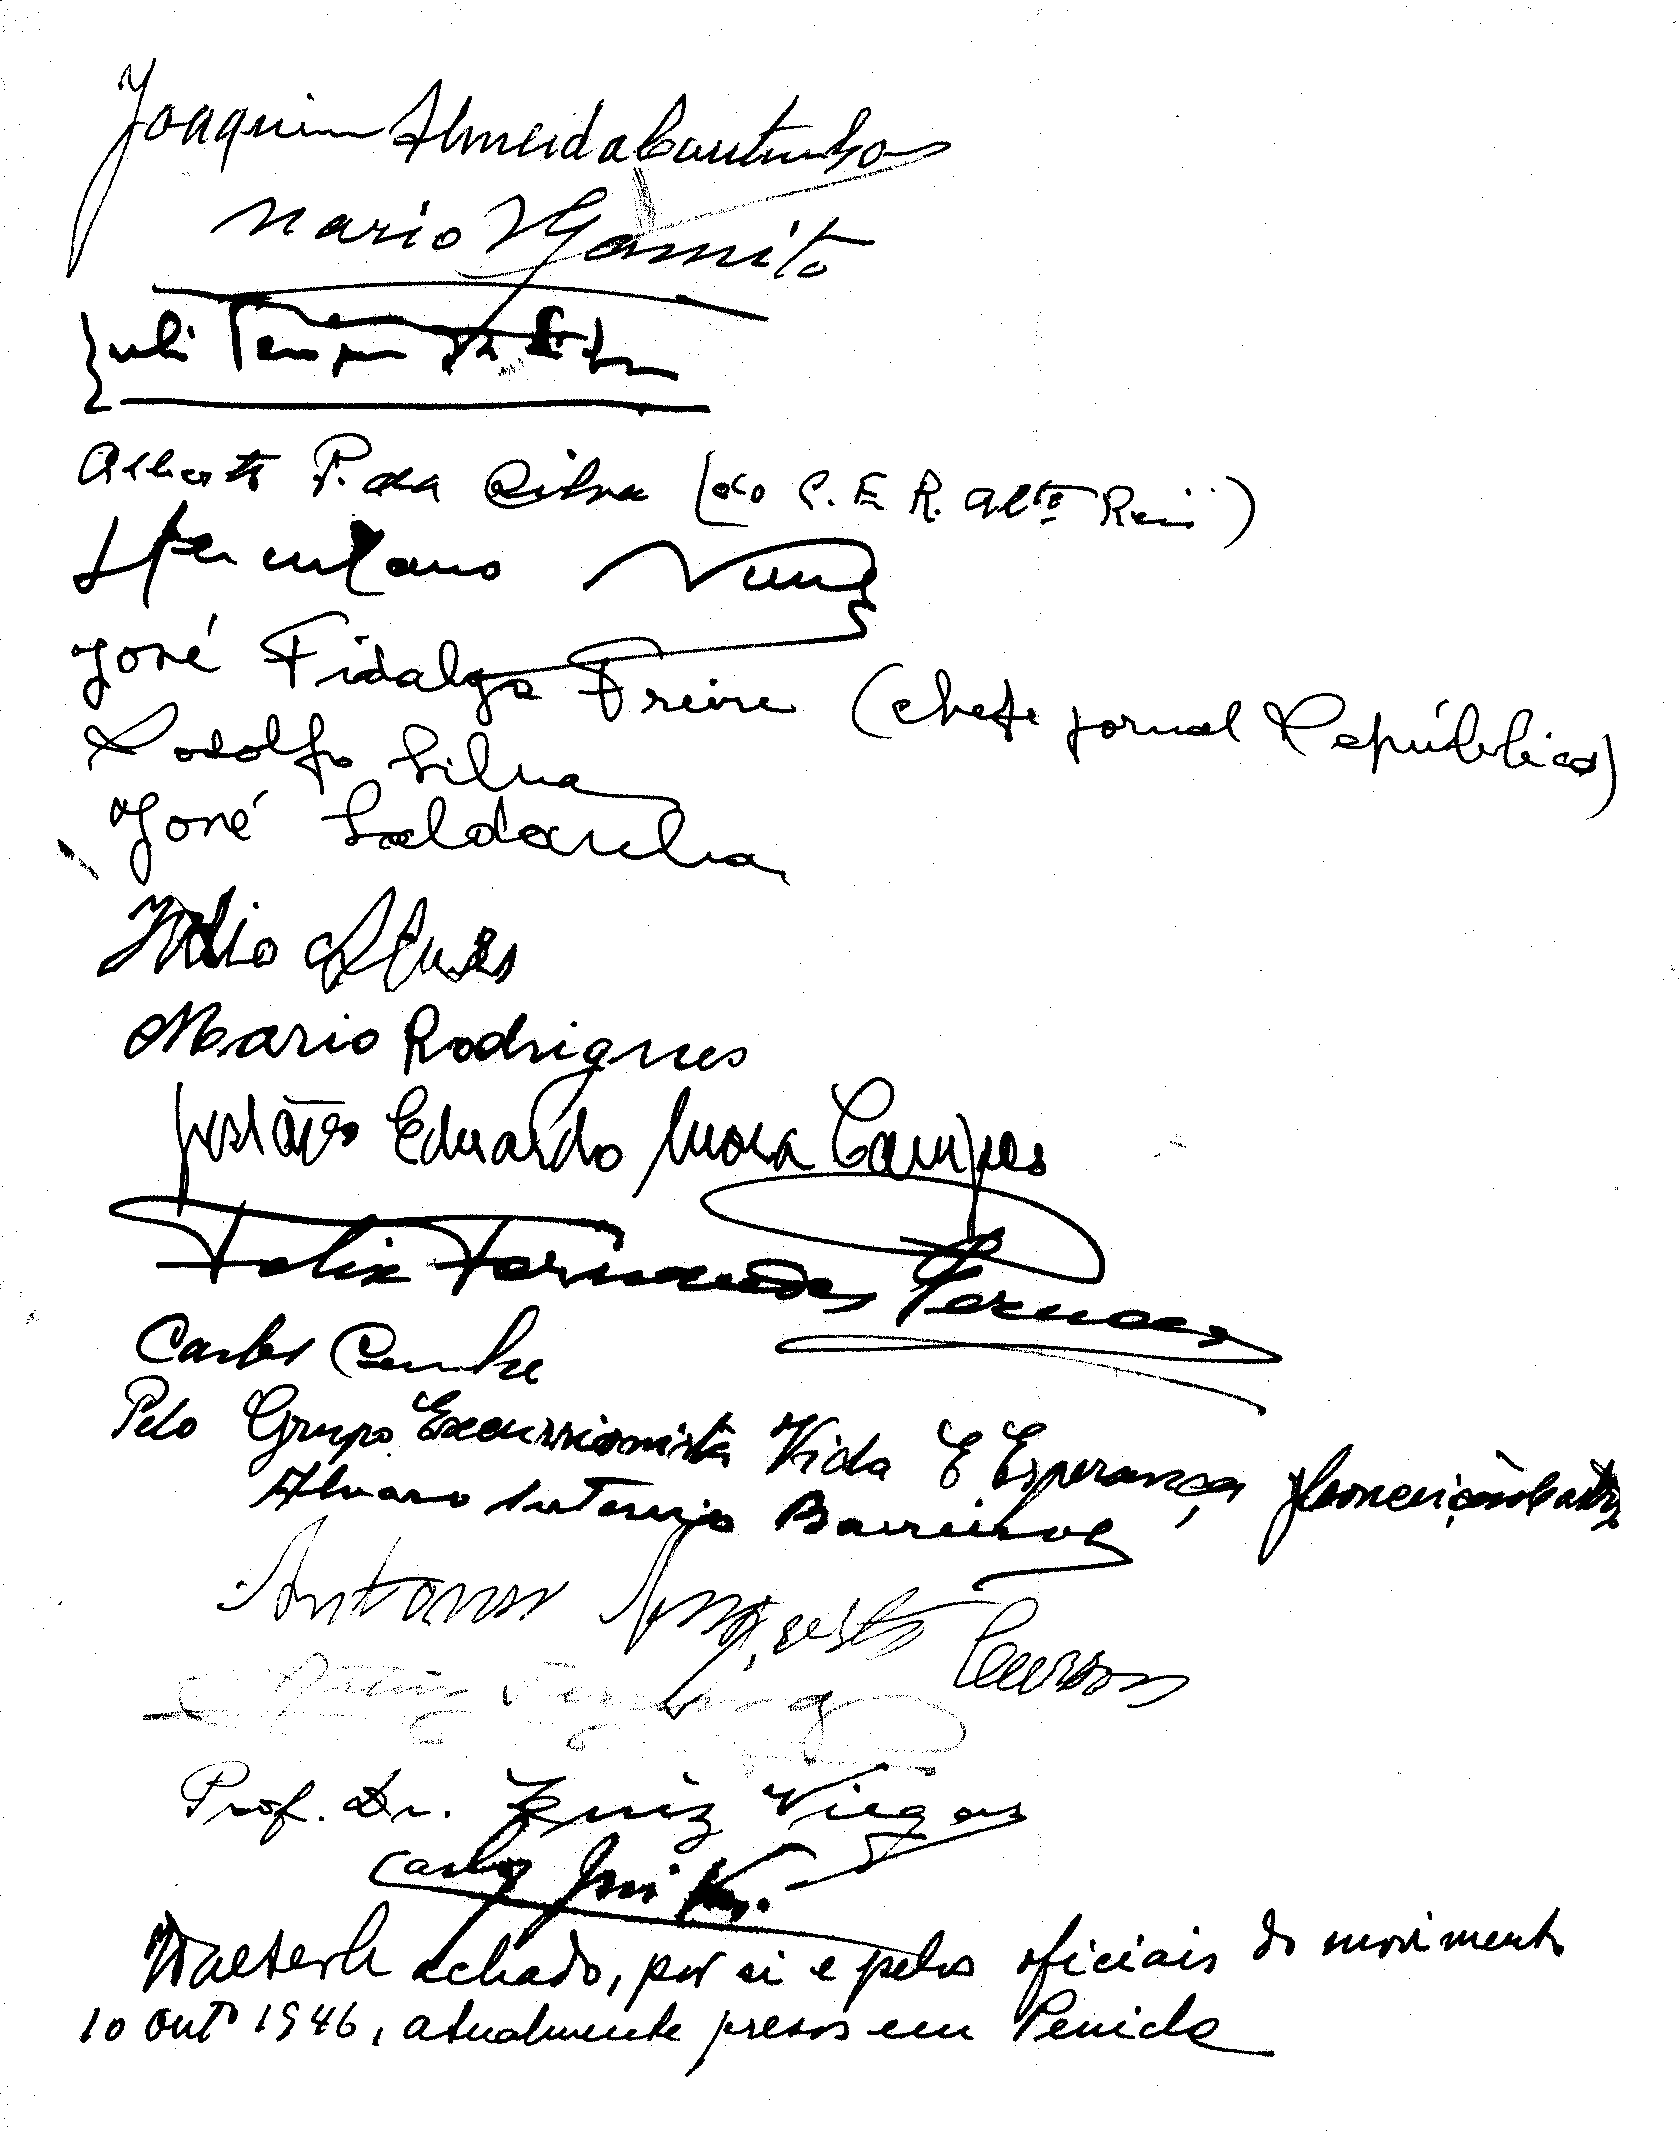 Joaquim Almeida Coutinho
Mario Gamito
Alberto P. da Silva (do C. E. R. Alto Pina)
Herculano Nunes
José Fidalgo Freire (chefe jornal República)
Rodolfo Silva
José Saldanha
Julio Alves
Mario Rodrigues
Eduardo Mora Campos
Felix Fernandes
Carlos Cunha
Pelo Grupo Excursionista Vida E Esperança,
Alvaro Antonio Barreiros
Antonio Augusto
Prof. Dr. Luiz Viegas
Carlos José
Machado, por si e pelos oficiais do movimento
10 outº 1946, atualmente presos em Peniche